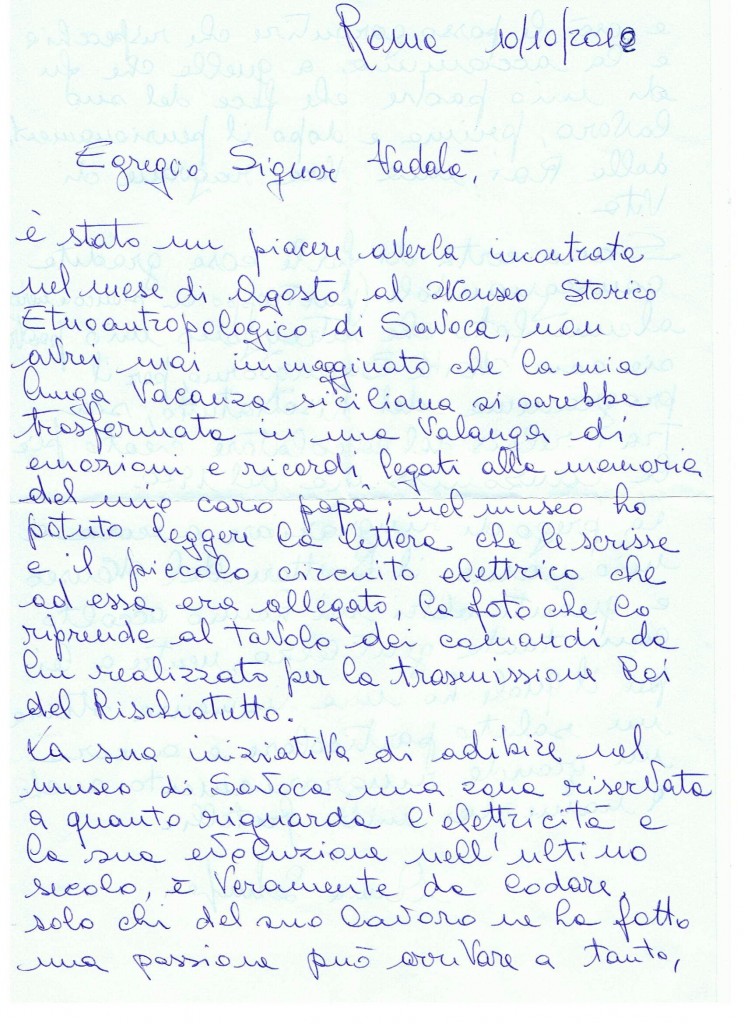 Roma 10/10/2010
Egregio Signor Vadalà,
è stato un piacere averla incontrata
nel mese di Agosto al Museo Storico
Etnoantropologico di Savoca, non
avrei mai immaginato che la mia
lunga vacanza siciliana si sarebbe
trasformata in una valanga di
emozioni e ricordi legati alla memoria
del mio caro papà; nel museo ho
potuto leggere la lettera che le scrisse
e il piccolo circuito elettrico che
ad essa era allegato, la foto che lo
riprende al tavolo dei comandi da
lui realizzato per la trasmissione Rai
del Rischiatutto.
La sua iniziativa di adibire nel
museo di Savoca una zona riservata
a quanto riguarda l'elettricità e
la sua evoluzione nell'ultimo
secolo, è veramente da lodare,
solo chi del suo lavoro ne ha fatto
una passione può arrivare a tanto,